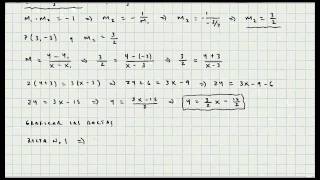 m₁ · m₂ = -1 ⇒ m₂ = -1/m₁ ⇒ m₂ = 1/(-2/3) ⇒ m₂ = 3/2
P(3,-3) y m₂ = 3/2
m = (y - y₁)/(x - x₁) ⇒ 3/2 = (y - (-3))/(x - 3) ⇒ 3/2 = (y + 3)/(x - 3)
2(y+3) = 3(x-3) ⇒ 2y + 6 = 3x - 9 ⇒ 2y = 3x - 9 - 6
2y = 3x - 15 ⇒ y = (3x - 15)/2 ⇒ y = 3/2 x - 15/2
GRAFICAR LAS RECTAS
RECTA No. 1 ⇒